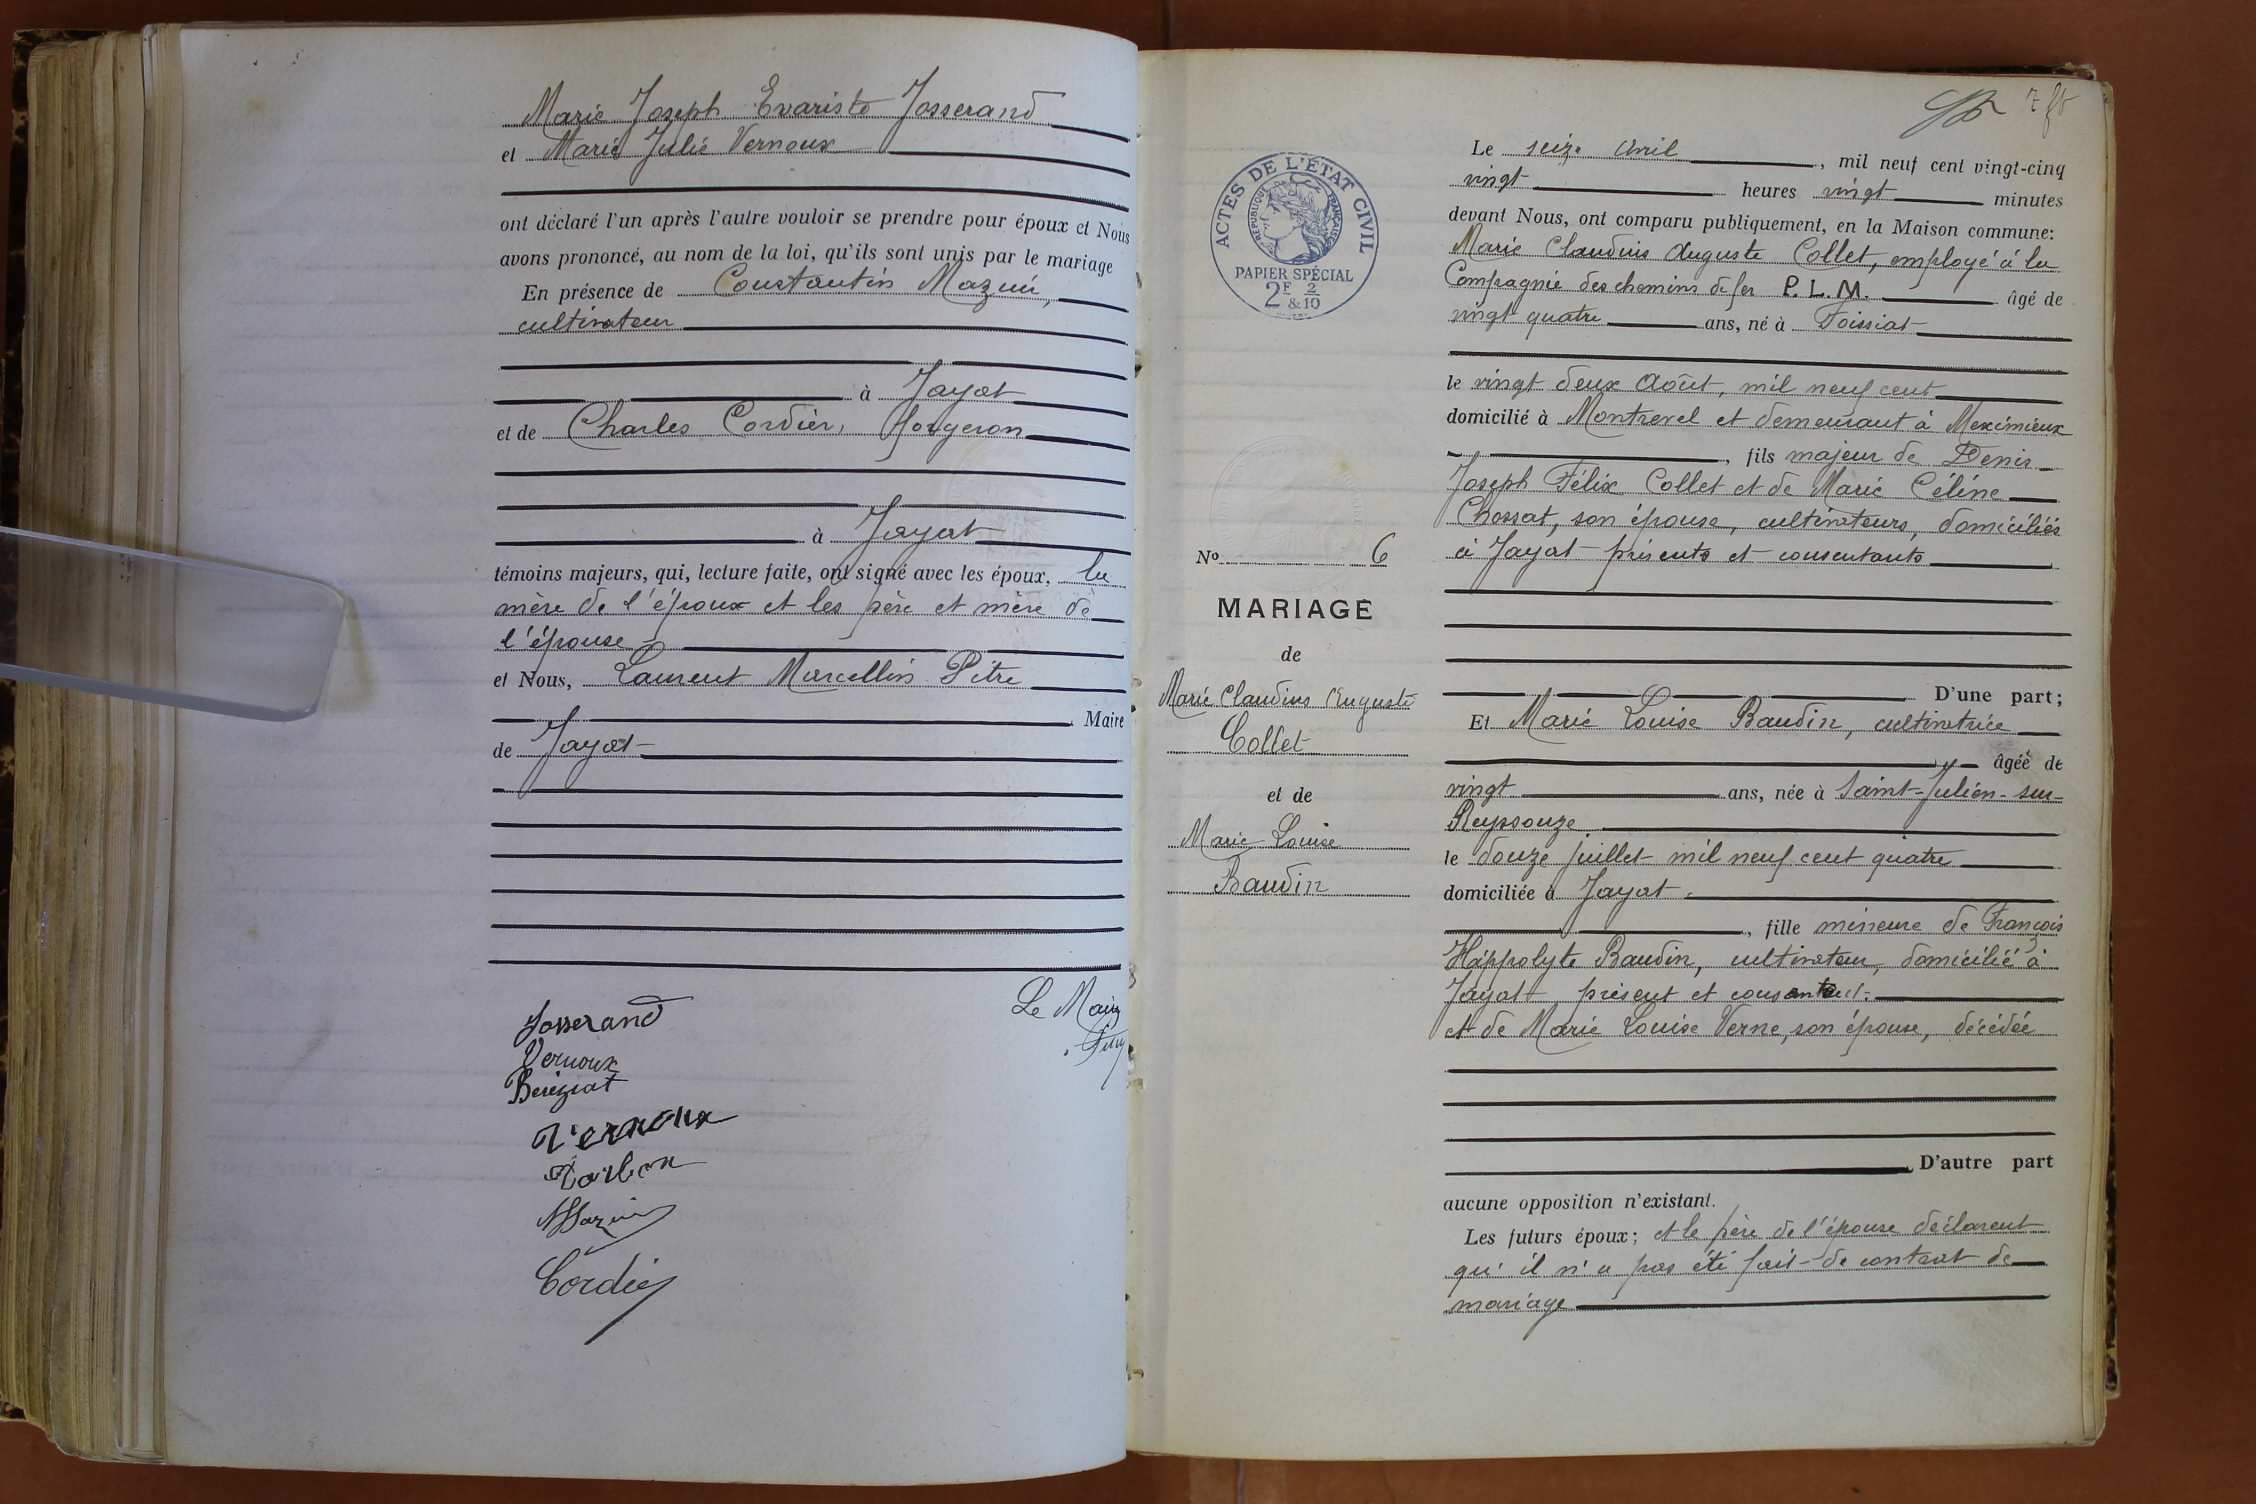 Marie Joseph Evariste Josserand
et Marie Julie Vernoux
ont déclaré l'un après l'autre vouloir se prendre pour époux et Nous
avons prononcé, au nom de la loi, qu'ils sont unis par le mariage
En présence de Constantin Mazuir,
cultivateur
à Jayat
et de Charles Cordier, forgeron
à Jayat
témoins majeurs, qui, lecture faite, ont signé avec les époux, la
mère de l'époux et les père et mère de
l'épouse
et Nous, Laurent Marcellin Pitre
Maire
de Jayat
Le Maire
Josserand
Vernoux
Béréziat
Vernoux
Mazuir
Cordier
ACTES DE L'ÉTAT CIVIL
RÉPUBLIQUE FRANÇAISE
PAPIER SPÉCIAL
2F 2
&10
No 6
MARIAGE
de
Marie Claudius Auguste
Collet
et de
Marie Louise
Baudin
Le seize avril, mil neuf cent vingt-cinq
vingt heures vingt minutes
devant Nous, ont comparu publiquement, en la Maison commune:
Marie Claudius Auguste Collet, employé à la
Compagnie des chemins de fer P.L.M. âgé de
vingt quatre ans, né à Foissiat
le vingt deux août, mil neuf cent
domicilié à Montrevel et demeurant à Meximieux
, fils majeur de Denis
Joseph Félix Collet et de Marie Céline
Chossat, son épouse, cultivateurs, domiciliés
à Jayat présents et consentants
D'une part;
Et Marie Louise Baudin, cultivatrice
âgée de
vingt ans, née à Saint-Julien-sur-
Reyssouze
le douze juillet mil neuf cent quatre
domiciliée à Jayat
, fille mineure de François
Hippolyte Baudin, cultivateur, domicilié à
Jayat présent et consentant.
et de Marie Louise Verne, son épouse, décédée
D'autre part
aucune opposition n'existant.
Les futurs époux; et le père de l'épouse déclarent
qu'il n'a pas été fait de contrat de
mariage